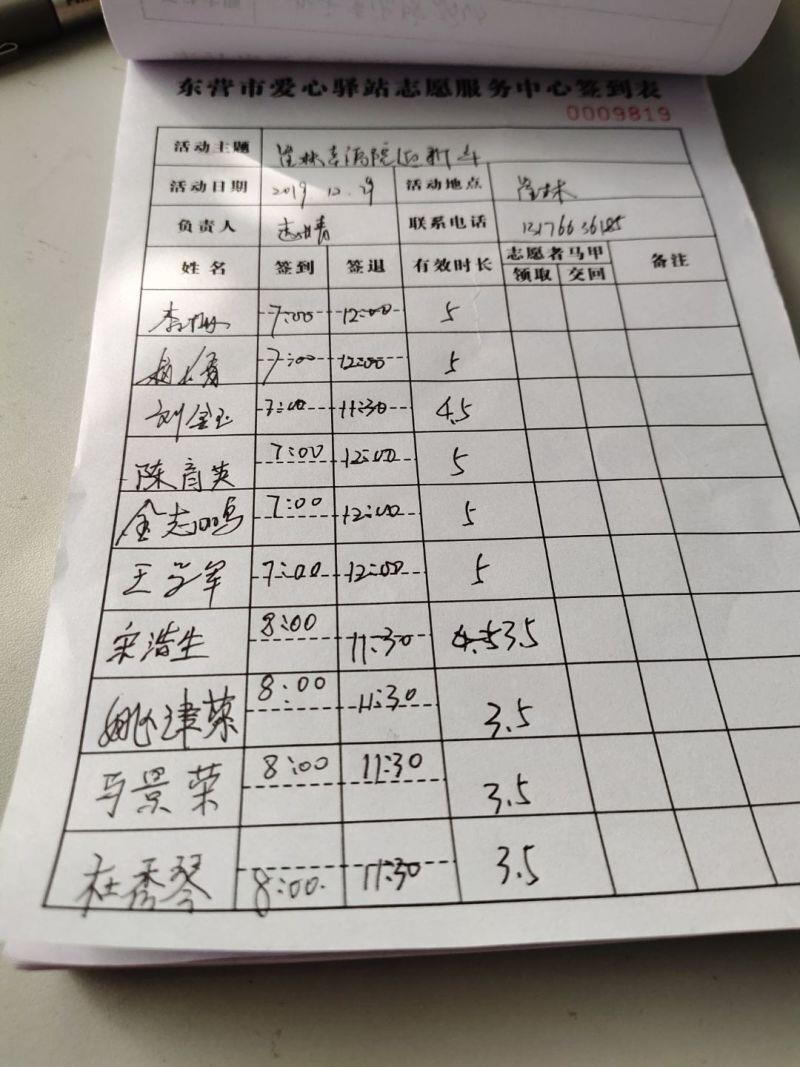 东营市爱心驿站志愿服务中心签到表
0009819
活动主题
活动日期 2019 12. 活动地点
负责人 联系电话
姓名 签到 签退 有效时长 志愿者马甲 备注
领取 交回
7:00 12:00 5
7:00 12:00 5
刘金玉 7:00 11:30 4.5
陈育英 7:00 12:00 5
金志鸣 7:00 12:00 5
王 军 7:00 12:00 5
宋浩生 8:00 11:30 3.5
姚津荣 8:00 11:30 3.5
马景荣 8:00 11:30 3.5
杜秀琴 8:00. 11:30 3.5